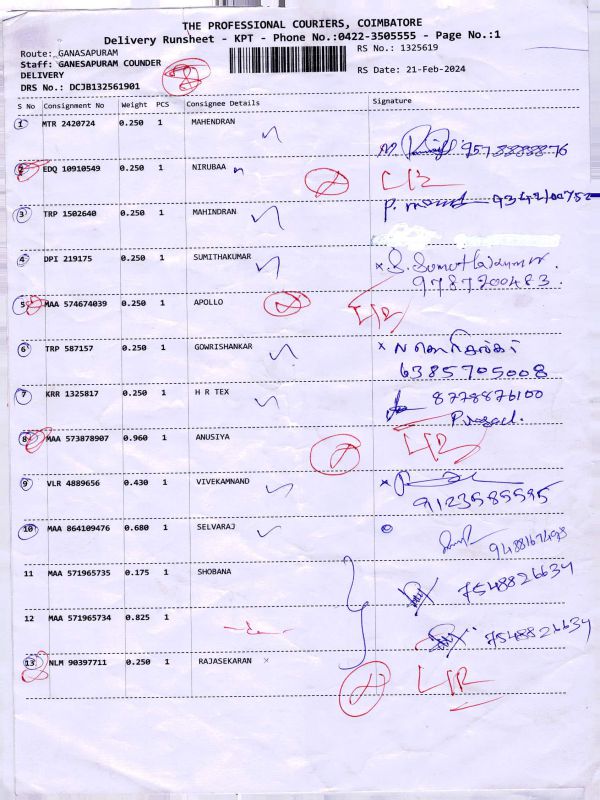 THE PROFESSIONAL COURIERS, COIMBATORE
Delivery Runsheet - KPT - Phone No.:0422-3505555 - Page No.:1
Route: GANASAPURAM
RS No.: 1325619
Staff: GANESAPURAM COUNDER
DELIVERY
RS Date: 21-Feb-2024
DRS No.: DCJB132561901
S No Consignment No Weight PCS Consignee Details Signature
1 MTR 2420724 0.250 1 MAHENDRAN
9578888876
2 EDQ 10910549 0.250 1 NIRUBAA
3 TRP 1502640 0.250 1 MAHINDRAN
4 DPI 219175 0.250 1 SUMITHAKUMAR
9787200483
5 MAA 574674039 0.250 1 APOLLO
6 TRP 587157 0.250 1 GOWRISHANKAR
6385705008
7 KRR 1325817 0.250 1 H R TEX 8778876100
8 MAA 573878907 0.960 1 ANUSIYA
9 VLR 4889656 0.430 1 VIVEKAMNAND
9123585595
10 MAA 864109476 0.680 1 SELVARAJ
11 MAA 571965735 0.175 1 SHOBANA 7548826634
12 MAA 571965734 0.825 1 7548826634
13 NLM 90397711 0.250 1 RAJASEKARAN x